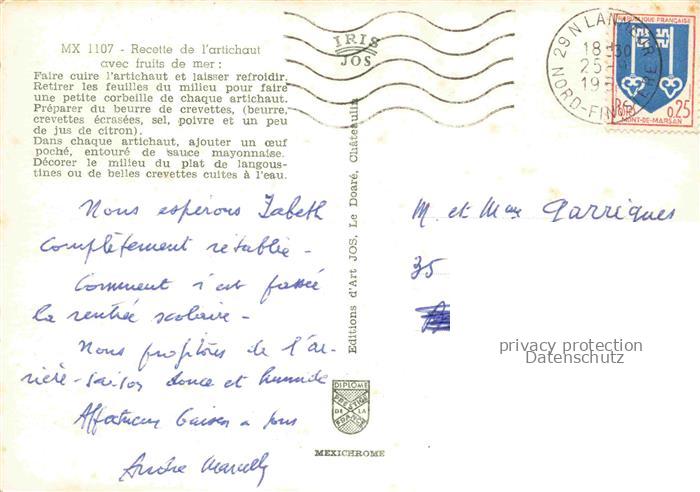 MX 1107 - Recette de l'artichaut
avec fruits de mer :
Faire cuire l'artichaut et laisser refroidir.
Retirer les feuilles du milieu pour faire
une petite corbeille de chaque artichaut.
Préparer du beurre de crevettes, (beurre,
crevettes écrasées, sel, poivre et un peu
de jus de citron).
Dans chaque artichaut, ajouter un œuf
poché, entouré de sauce mayonnaise.
Décorer le milieu du plat de langous-
tines ou de belles crevettes cuites à l'eau.
Nous espérons Zabeth
complètement rétablie -
Comment s'est passée
la rentrée scolaire -
Nous profitons de l'ar-
rière-saison douce et humide
Affectueux baisers à tous
André
Editions d'Art JOS, Le Doaré, Châteaulin
IRIS
JOS
DIPLOME
PRESTIGE
DE LA
FRANCE
MEXICHROME
29 N LANMEUR
18 H 30
25 -
19
NORD-FINISTERE
REPUBLIQUE FRANÇAISE
POSTES
0,25
MONT-DE-MARSAN
M. et Mme Garrigues
35
privacy protection
Datenschutz